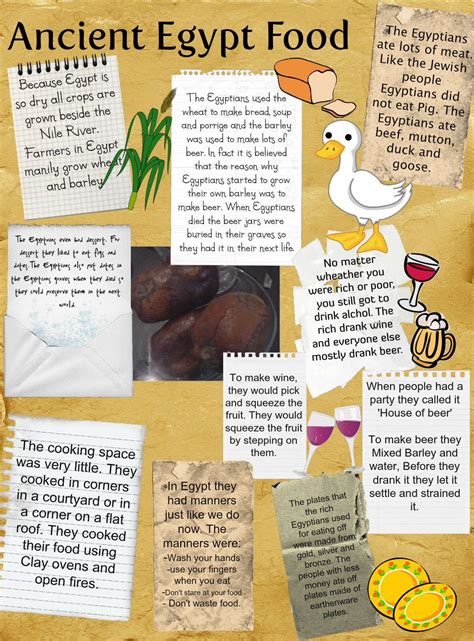 Ancient Egypt Food
Because Egypt is
so dry all crops are
grown beside the
Nile River.
Farmers in Egypt
manily grow wheat
and barley
The Egyptians used the
wheat to make bread, soup
and porrige and the barley
was used to make lots of
beer. In fact it is believed
that the reason why
Egyptians started to grow
their own barley was to
make beer. When Egyptians
died the beer jars were
buried in their graves so
they had it in their next life.
The Egyptians
ate lots of meat.
Like the Jewish
people
Egyptians did
not eat Pig. The
Egyptians ate
beef, mutton,
duck and
goose.
The Egyptians even had dessert. For
dessert they liked to eat figs and
dates. The Egyptians also put dates in
the Egyptians graves when they died so
they could preserve them in the next
world.
No matter
wheather you
were rich or poor,
you still got to
drink alchol. The
rich drank wine
and everyone else
mostly drank beer.
To make wine,
they would pick
and squeeze the
fruit. They would
squeeze the fruit
by stepping on
them.
When people had a
party they called it
'House of beer'
To make beer they
Mixed Barley and
water, Before they
drank it they let it
settle and strained
it.
The cooking space
was very little. They
cooked in corners
in a courtyard or in
a corner on a flat
roof. They cooked
their food using
Clay ovens and
open fires.
-In Egypt they
had manners
just like we do
now. The
manners were:
-Wash your hands
-use your fingers
when you eat
-Don't stare at your food
- Don't waste food.
The plates that
the rich
Egyptians used
for eating off
were made from
gold, silver and
bronze. The
people with less
money ate off
plates made of
earthenware
plates.